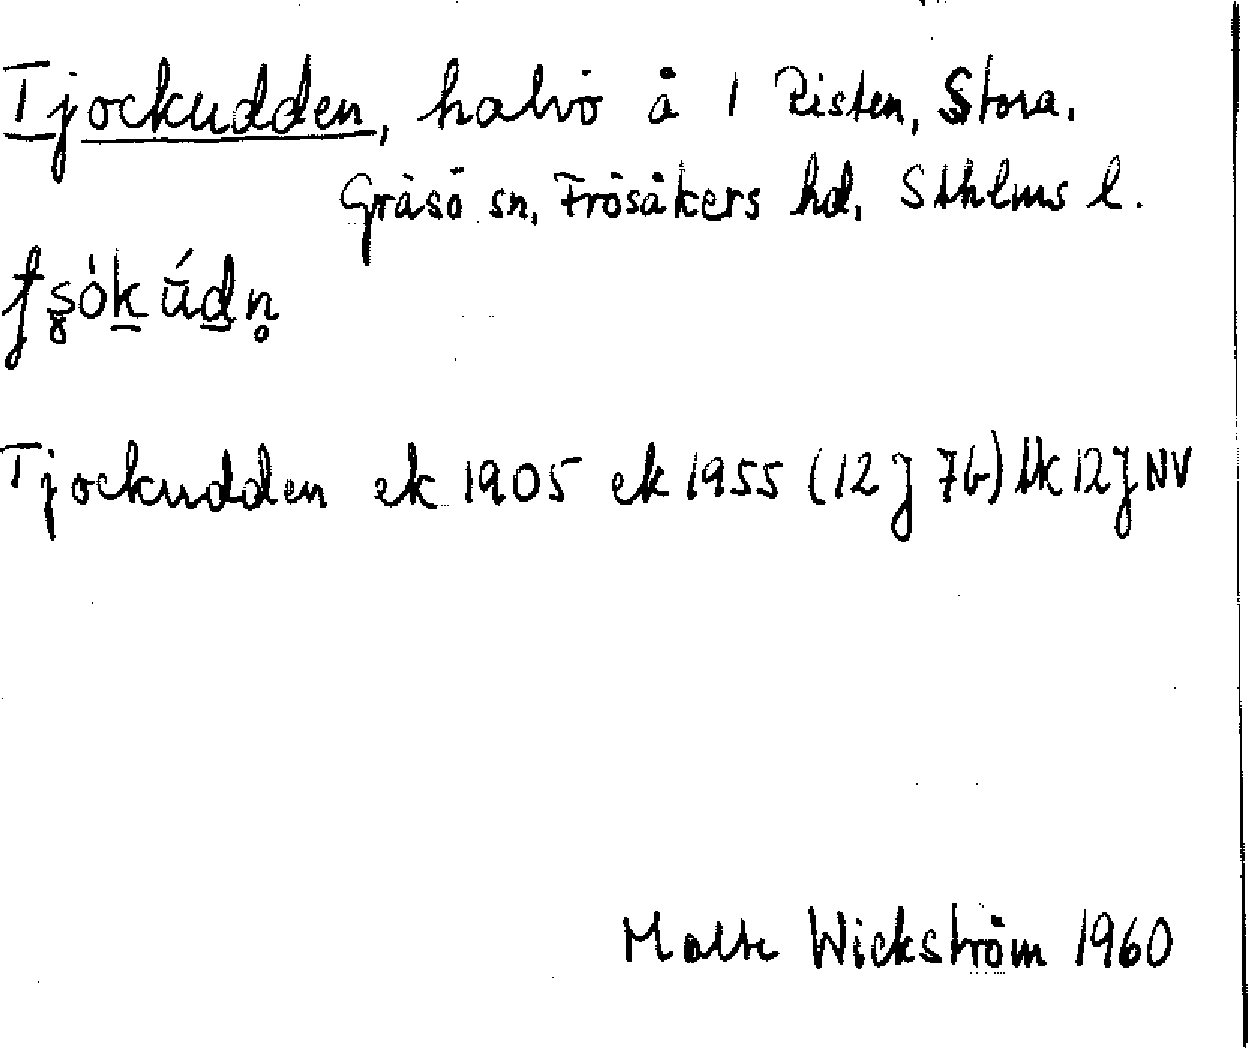 Tjockudden, halvö å 1 Risten, Stora.
Gräsö sn, Frösåkers hd, Sthlms l.
Tjockudden ek 1905 ek 1955 (12 J 7b) tk 12 J NV
Malte Wickström 1960